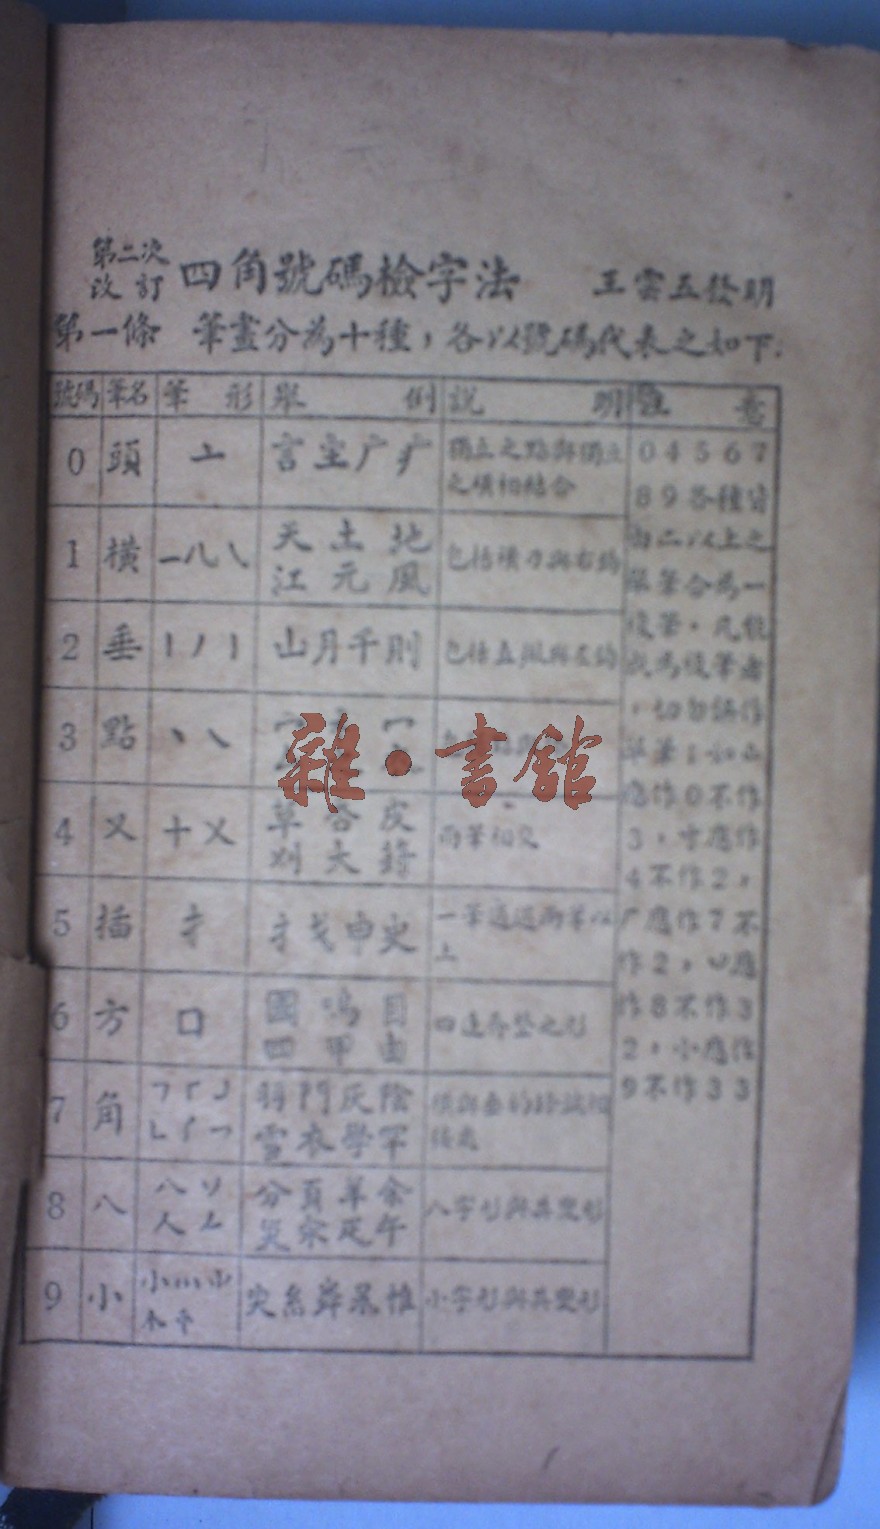 第二次
改訂 四角號碼檢字法 王雲五發明
第一條 筆畫分為十種，各以號碼代表之如下：
號碼 筆名 筆形 舉例 說明 注意
0 頭 亠 言主广疒 獨立之點與獨立之橫相結合
1 橫 一 天土地江元風 包括橫刁與右鉤
2 垂 丨丿亅 山月千則 包括直撇與左鉤
3 點 丶㇏
4 叉 十乂 草杏皮刈大 兩筆相交
5 插 扌 扌戈申史 一筆通過兩筆以上
6 方 口 國鳴目四甲由 四邊齊整之形
7 角 羽門灰陰雪衣學罕 橫與垂的鋒頭相接處
8 八 八丷人 分頁羊余災氽疋午 八字形與其變形
9 小 小 尖糸舜杲惟 小字形與其變形
0 4 5 6 7
8 9 各種皆
由二以上之
單筆合為一
複筆。凡能
成為複筆者
，切勿誤作
單筆；如亠
應作0不作
3，寸應作
4不作2，
厂應作7不
作2，丷應
作8不作3
2，小應作
9不作3 3
雜·書館